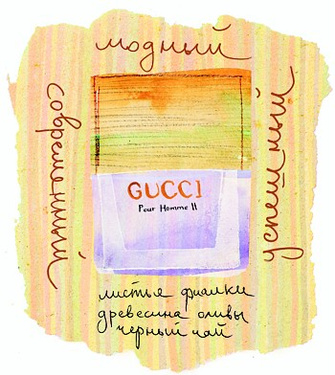 модный
современный
успешный
GUCCI
Pour Homme II
листья фиалки
древесина оливы
черный чай